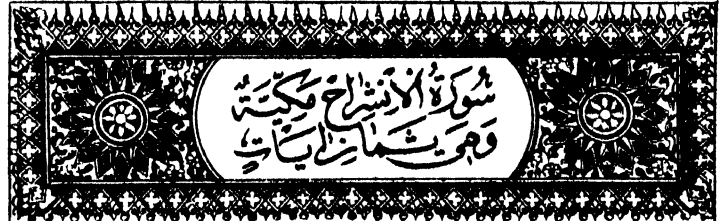 سُورَةُ الْاِنْشِرَاحِ مَكِّيَّةٌ
وَهِيَ ثَمَانِ اٰيَاتٍ